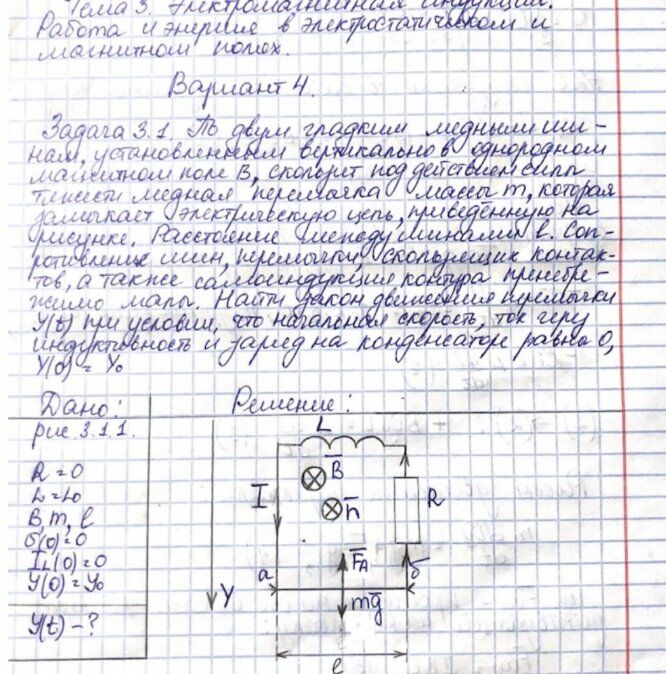 Тема 3. Электромагнитная индукция.
Работа и энергия в электростатическом и
магнитном полях.
Вариант 4.
Задача 3.1. По двум гладким медным ши-
нам, установленным вертикально в однородном
магнитном поле B, скользит под действием силы
тяжести медная перемычка массы m, которая
замыкает электрическую цепь, приведённую на
рисунке. Расстояние между шинами в. Соп-
ротивление шин, перемычки, скользящих контак-
тов, а также самоиндукция контура пренебре-
жимо малы. Найти закон движения премычки
Y(t) при условии, что начальная скорость, ток через
индуктивность и заряд на конденсаторе равна 0,
Y(0) = Y₀
Дано: Решение:
рис 3.1.1.
R = 0
L = L₀
B, m, l
I_L(0) = 0
Y(0) = Y₀
Y(t) - ?
L
B
n
I
R
F_A
a
б
Y
mg
l